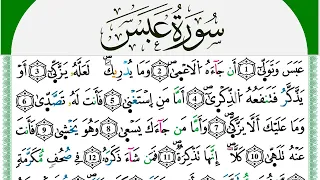 سُورَةُ عَبَسَ
عَبَسَ وَتَوَلَّىٰٓ ١ أَن جَآءَهُ ٱلْأَعْمَىٰ ٢ وَمَا يُدْرِيكَ لَعَلَّهُۥ يَزَّكَّىٰٓ ٣ أَوْ
يَذَّكَّرُ فَتَنفَعَهُ ٱلذِّكْرَىٰٓ ٤ أَمَّا مَنِ ٱسْتَغْنَىٰ ٥ فَأَنتَ لَهُۥ تَصَدَّىٰ ٦
وَمَا عَلَيْكَ أَلَّا يَزَّكَّىٰ ٧ وَأَمَّا مَن جَآءَكَ يَسْعَىٰ ٨ وَهُوَ يَخْشَىٰ ٩ فَأَنتَ
عَنْهُ تَلَهَّىٰ ١٠ كَلَّآ إِنَّهَا تَذْكِرَةٌ ١١ فَمَن شَآءَ ذَكَرَهُۥ ١٢ فِى صُحُفٍ مُّكَرَّمَةٍ